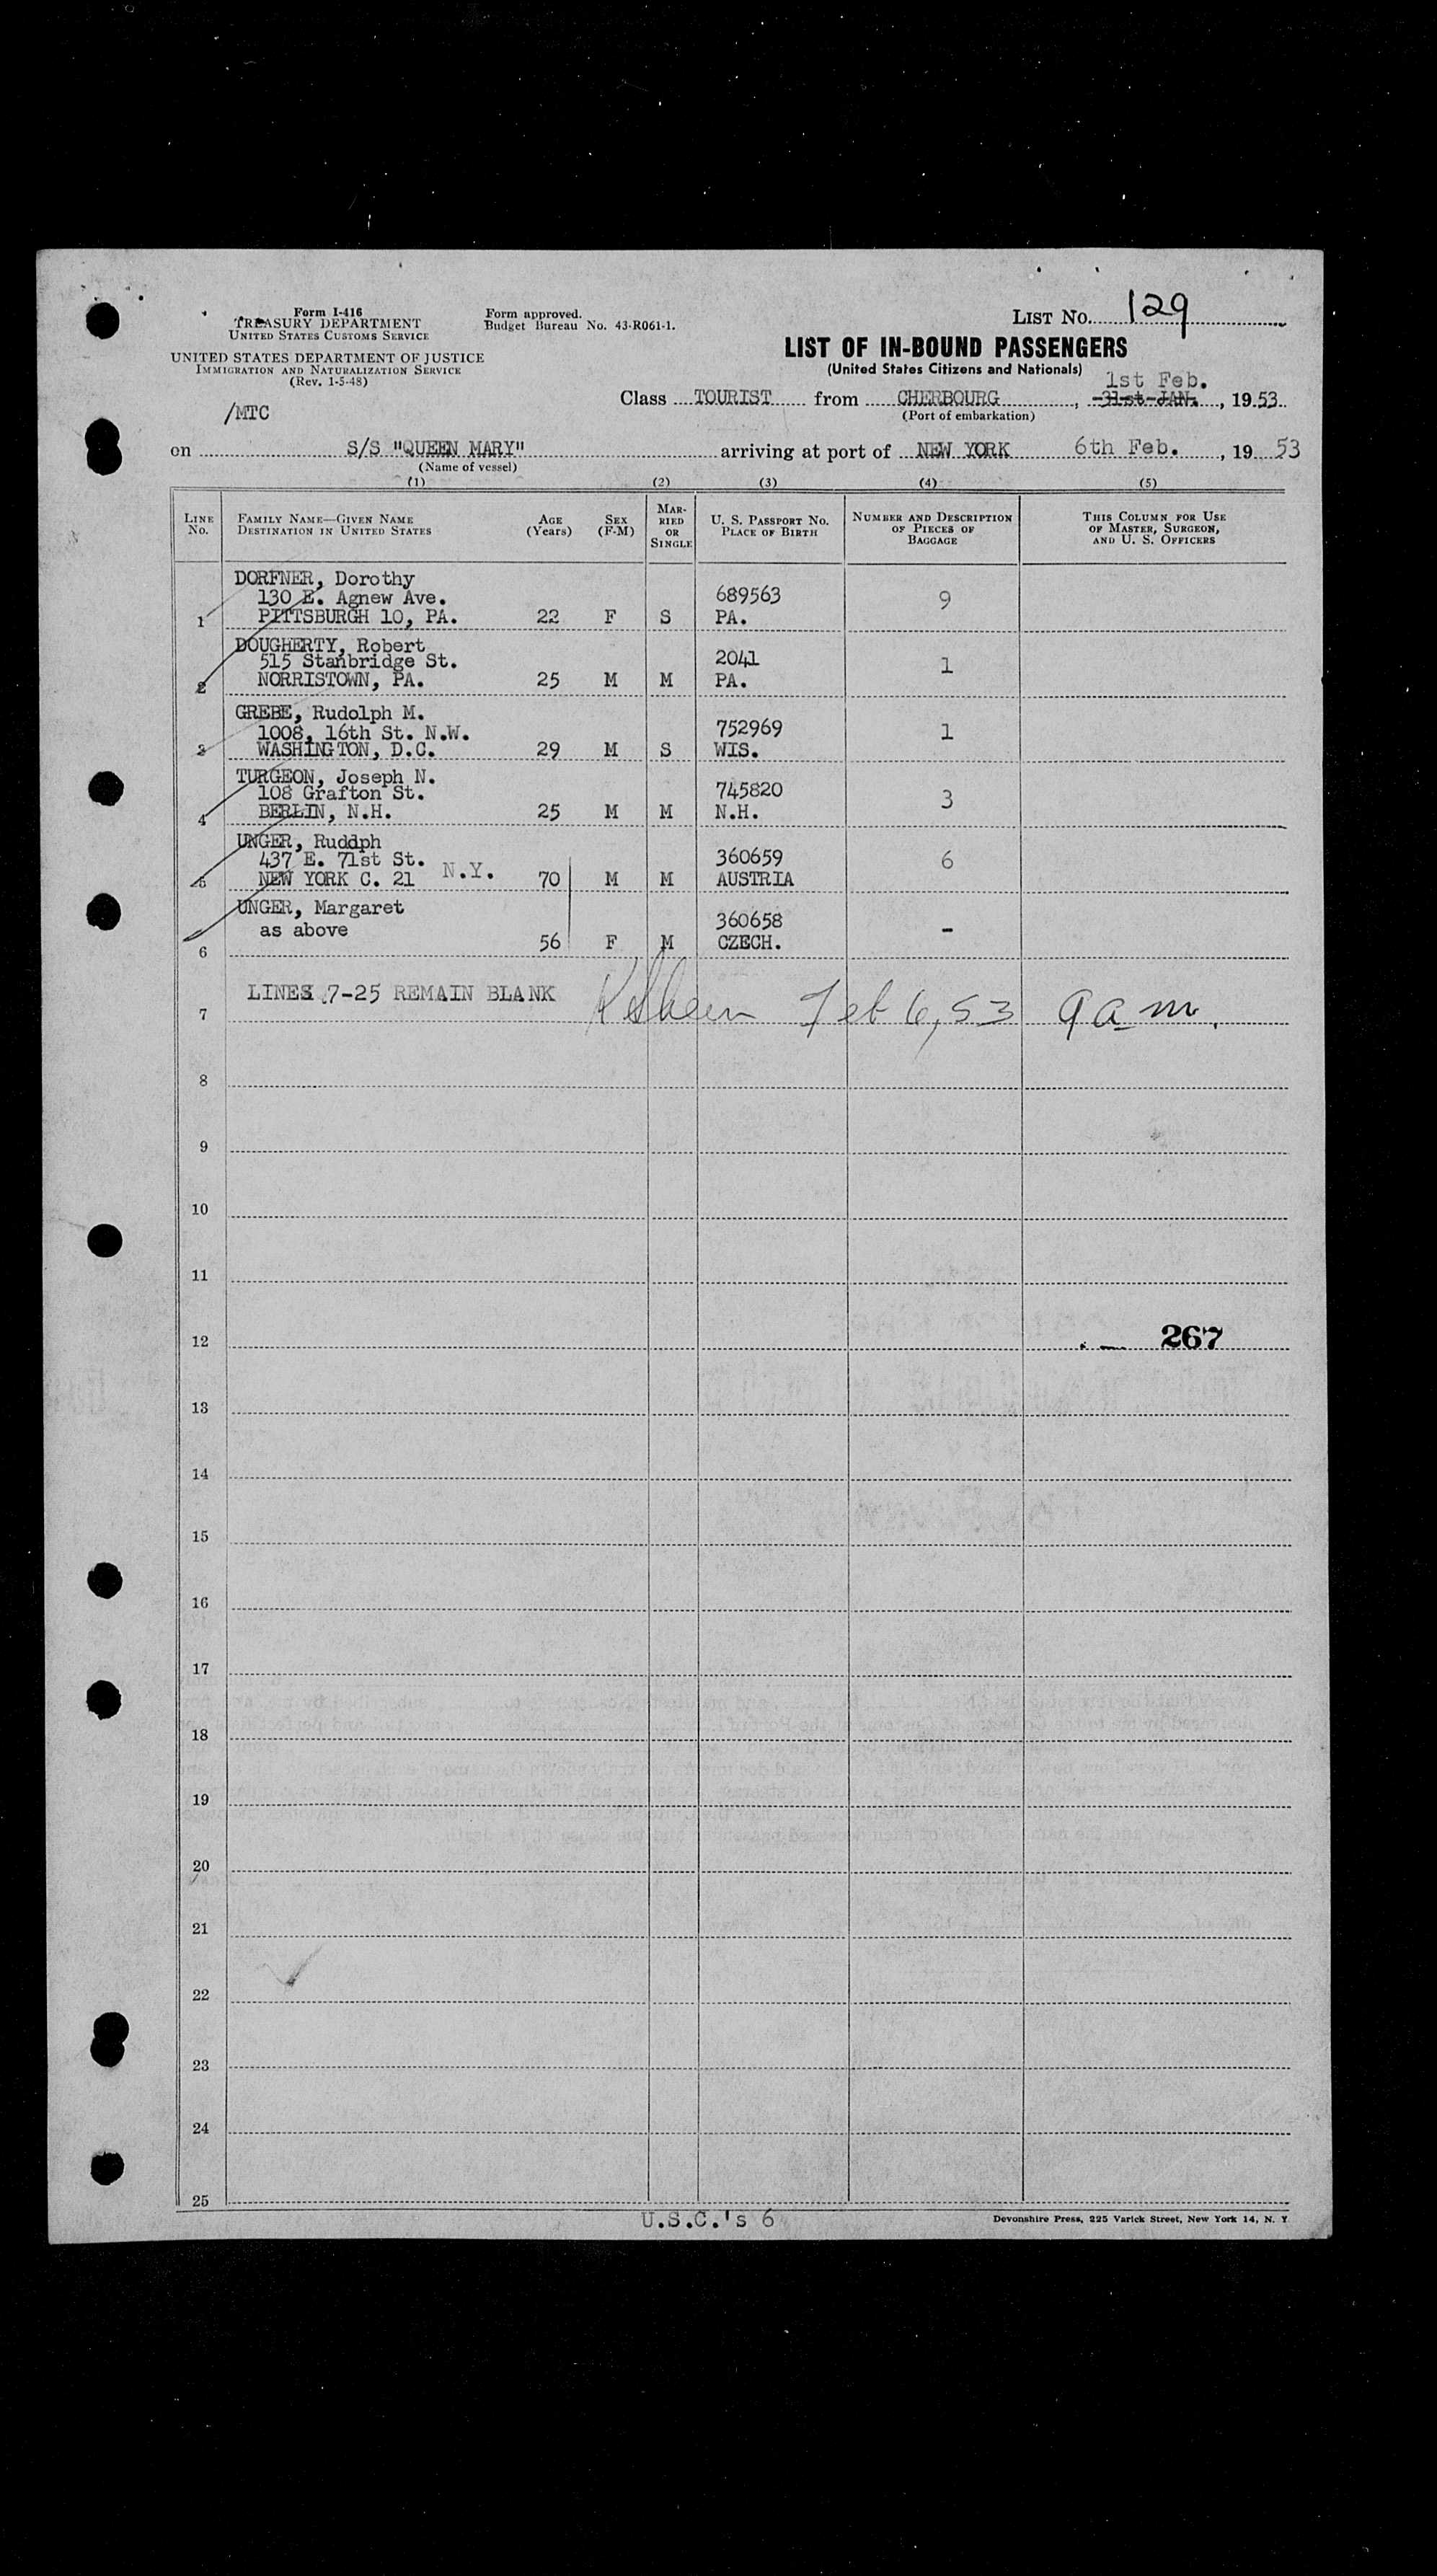 Form I-416
TREASURY DEPARTMENT
UNITED STATES CUSTOMS SERVICE
UNITED STATES DEPARTMENT OF JUSTICE
IMMIGRATION AND NATURALIZATION SERVICE
(Rev. 1-5-48)
/MTC
Form approved.
Budget Bureau No. 43-R061-1.
LIST No. 129
LIST OF IN-BOUND PASSENGERS
(United States Citizens and Nationals)
1st Feb.
Class TOURIST from CHERBOURG, 31st JAN., 1953
(Port of embarkation)
on S/S "QUEEN MARY" arriving at port of NEW YORK 6th Feb., 19 53
(Name of vessel)
(1) (2) (3) (4) (5)
LINE No. FAMILY NAME—GIVEN NAME DESTINATION IN UNITED STATES AGE (Years) SEX (F-M) MARRIED OR SINGLE U. S. PASSPORT NO. PLACE OF BIRTH NUMBER AND DESCRIPTION OF PIECES OF BAGGAGE THIS COLUMN FOR USE OF MASTER, SURGEON, AND U. S. OFFICERS
DORFNER, Dorothy
130 E. Agnew Ave. 689563 9
1 PITTSBURGH 10, PA. 22 F S PA.
DOUGHERTY, Robert
515 Stanbridge St. 2041 1
2 NORRISTOWN, PA. 25 M M PA.
GREBE, Rudolph M.
1008, 16th St. N.W. 752969 1
3 WASHINGTON, D.C. 29 M S WIS.
TURGEON, Joseph N.
108 Grafton St. 745820 3
4 BERLIN, N.H. 25 M M N.H.
UNGER, Rudolph
437 E. 71st St. 360659 6
5 NEW YORK C. 21 N.Y. 70 M M AUSTRIA
UNGER, Margaret
as above 360658 -
6 56 F M CZECH.
LINES 7-25 REMAIN BLANK Feb 6, 53 9 a m.
7
8
9
10
11
12 267
13
14
15
16
17
18
19
20
21
22
23
24
25
U.S.C.'s 6
Devonshire Press, 225 Varick Street, New York 14, N. Y